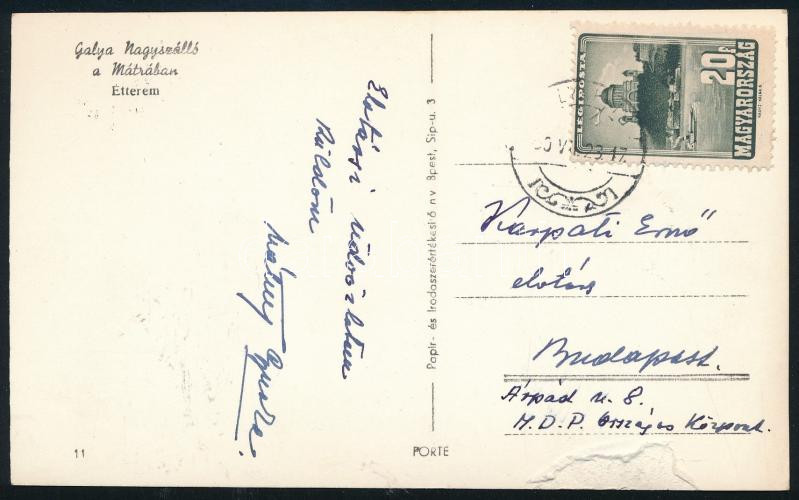 Galya Nagyszálló
a Mátrában
Étterem
Elvtársi üdvözletem
küldöm
11
Papír- és Irodaszerértékesítő n v Bpest, Síp-u. 3
PORTE
LÉGIPOSTA
20f
MAGYARORSZÁG
Kárpáti Ernő
elvtárs
Budapest.
Árpád u. 8.
M.D.P. Országos Központ.